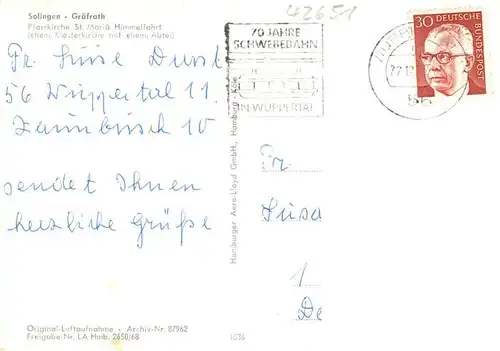 Solingen - Gräfrath
Pfarrkirche St. Mariä Himmelfahrt
(ehem. Klosterkirche mit ehem. Abtei)
Fr. Luise Dunst
56 Wuppertal 11.
Zaunbusch 10
sendet Ihnen
herzliche Grüße
Original-Luftaufnahme • Archiv-Nr. 87962
Freigabe-Nr. LA Hmb. 2650/68
Hamburger Aero-Lloyd GmbH., Hamburg - Köln
1636
42651
70 JAHRE
SCHWEBEBAHN
IN WUPPERTAL
56
30 DEUTSCHE
BUNDESPOST
Fr.
Susa
1
De